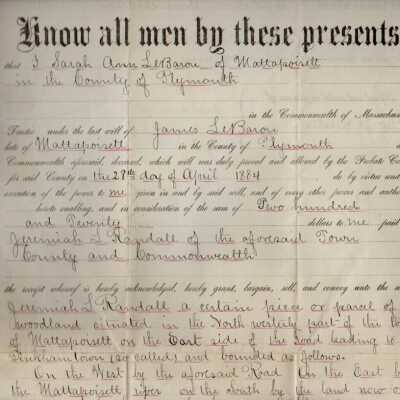 Know all men by these presents
that I Sarah Ann LeBaron of Mattapoisett
in the County of Plymouth
in the Commonwealth of Massachus
Trustee under the last will of James LeBaron
late of Mattapoisett in the County of Plymouth
Commonwealth aforesaid, deceased, which will was duly proved and allowed by the Probate Co
for said County on the 28th day of April 1884 do by virtue and
execution of the power to me given in and by said will, and of every other power and autho
hereto enabling, and in consideration of the sum of Two hundred
and Twenty dollars to me paid
Jeremiah L Randall of the aforesaid Town
County and Commonwealth
the receipt whereof is hereby acknowledged, hereby grant, bargain, sell, and convey unto the s
Jeremiah L Randall a certain piece or parcel of
woodland situated in the North westerly part of the
of Mattapoisett on the East side of the road leading to
Tinkhamtown so called and bounded as follows.
On the West by the aforesaid Road On the East b
the Mattapoisett river on the south by the land now o